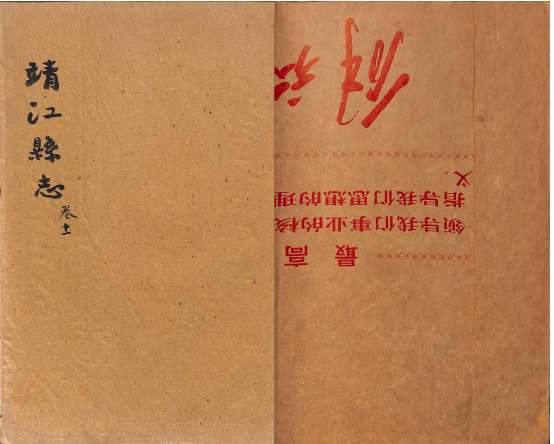 靖江縣志
卷十一
最高
领导我们事业的核
指导我们思想的理
义。